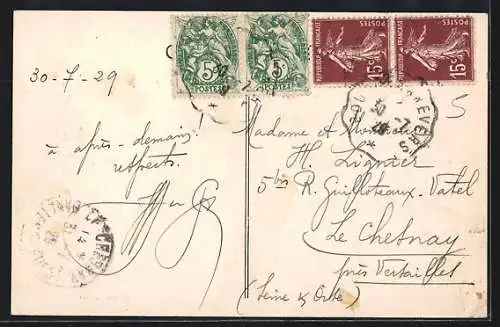 30-7-29
à après-demain!
respects.
Madame et Monsieur
H. Lignier
5bis R. Guilloteaux-Vatel
Le Chesnay
près Versailles
(Seine & Oise)
5
5c
5c
POSTES
POSTES
15c
REPUBLIQUE FRANÇAISE
POSTES
15c